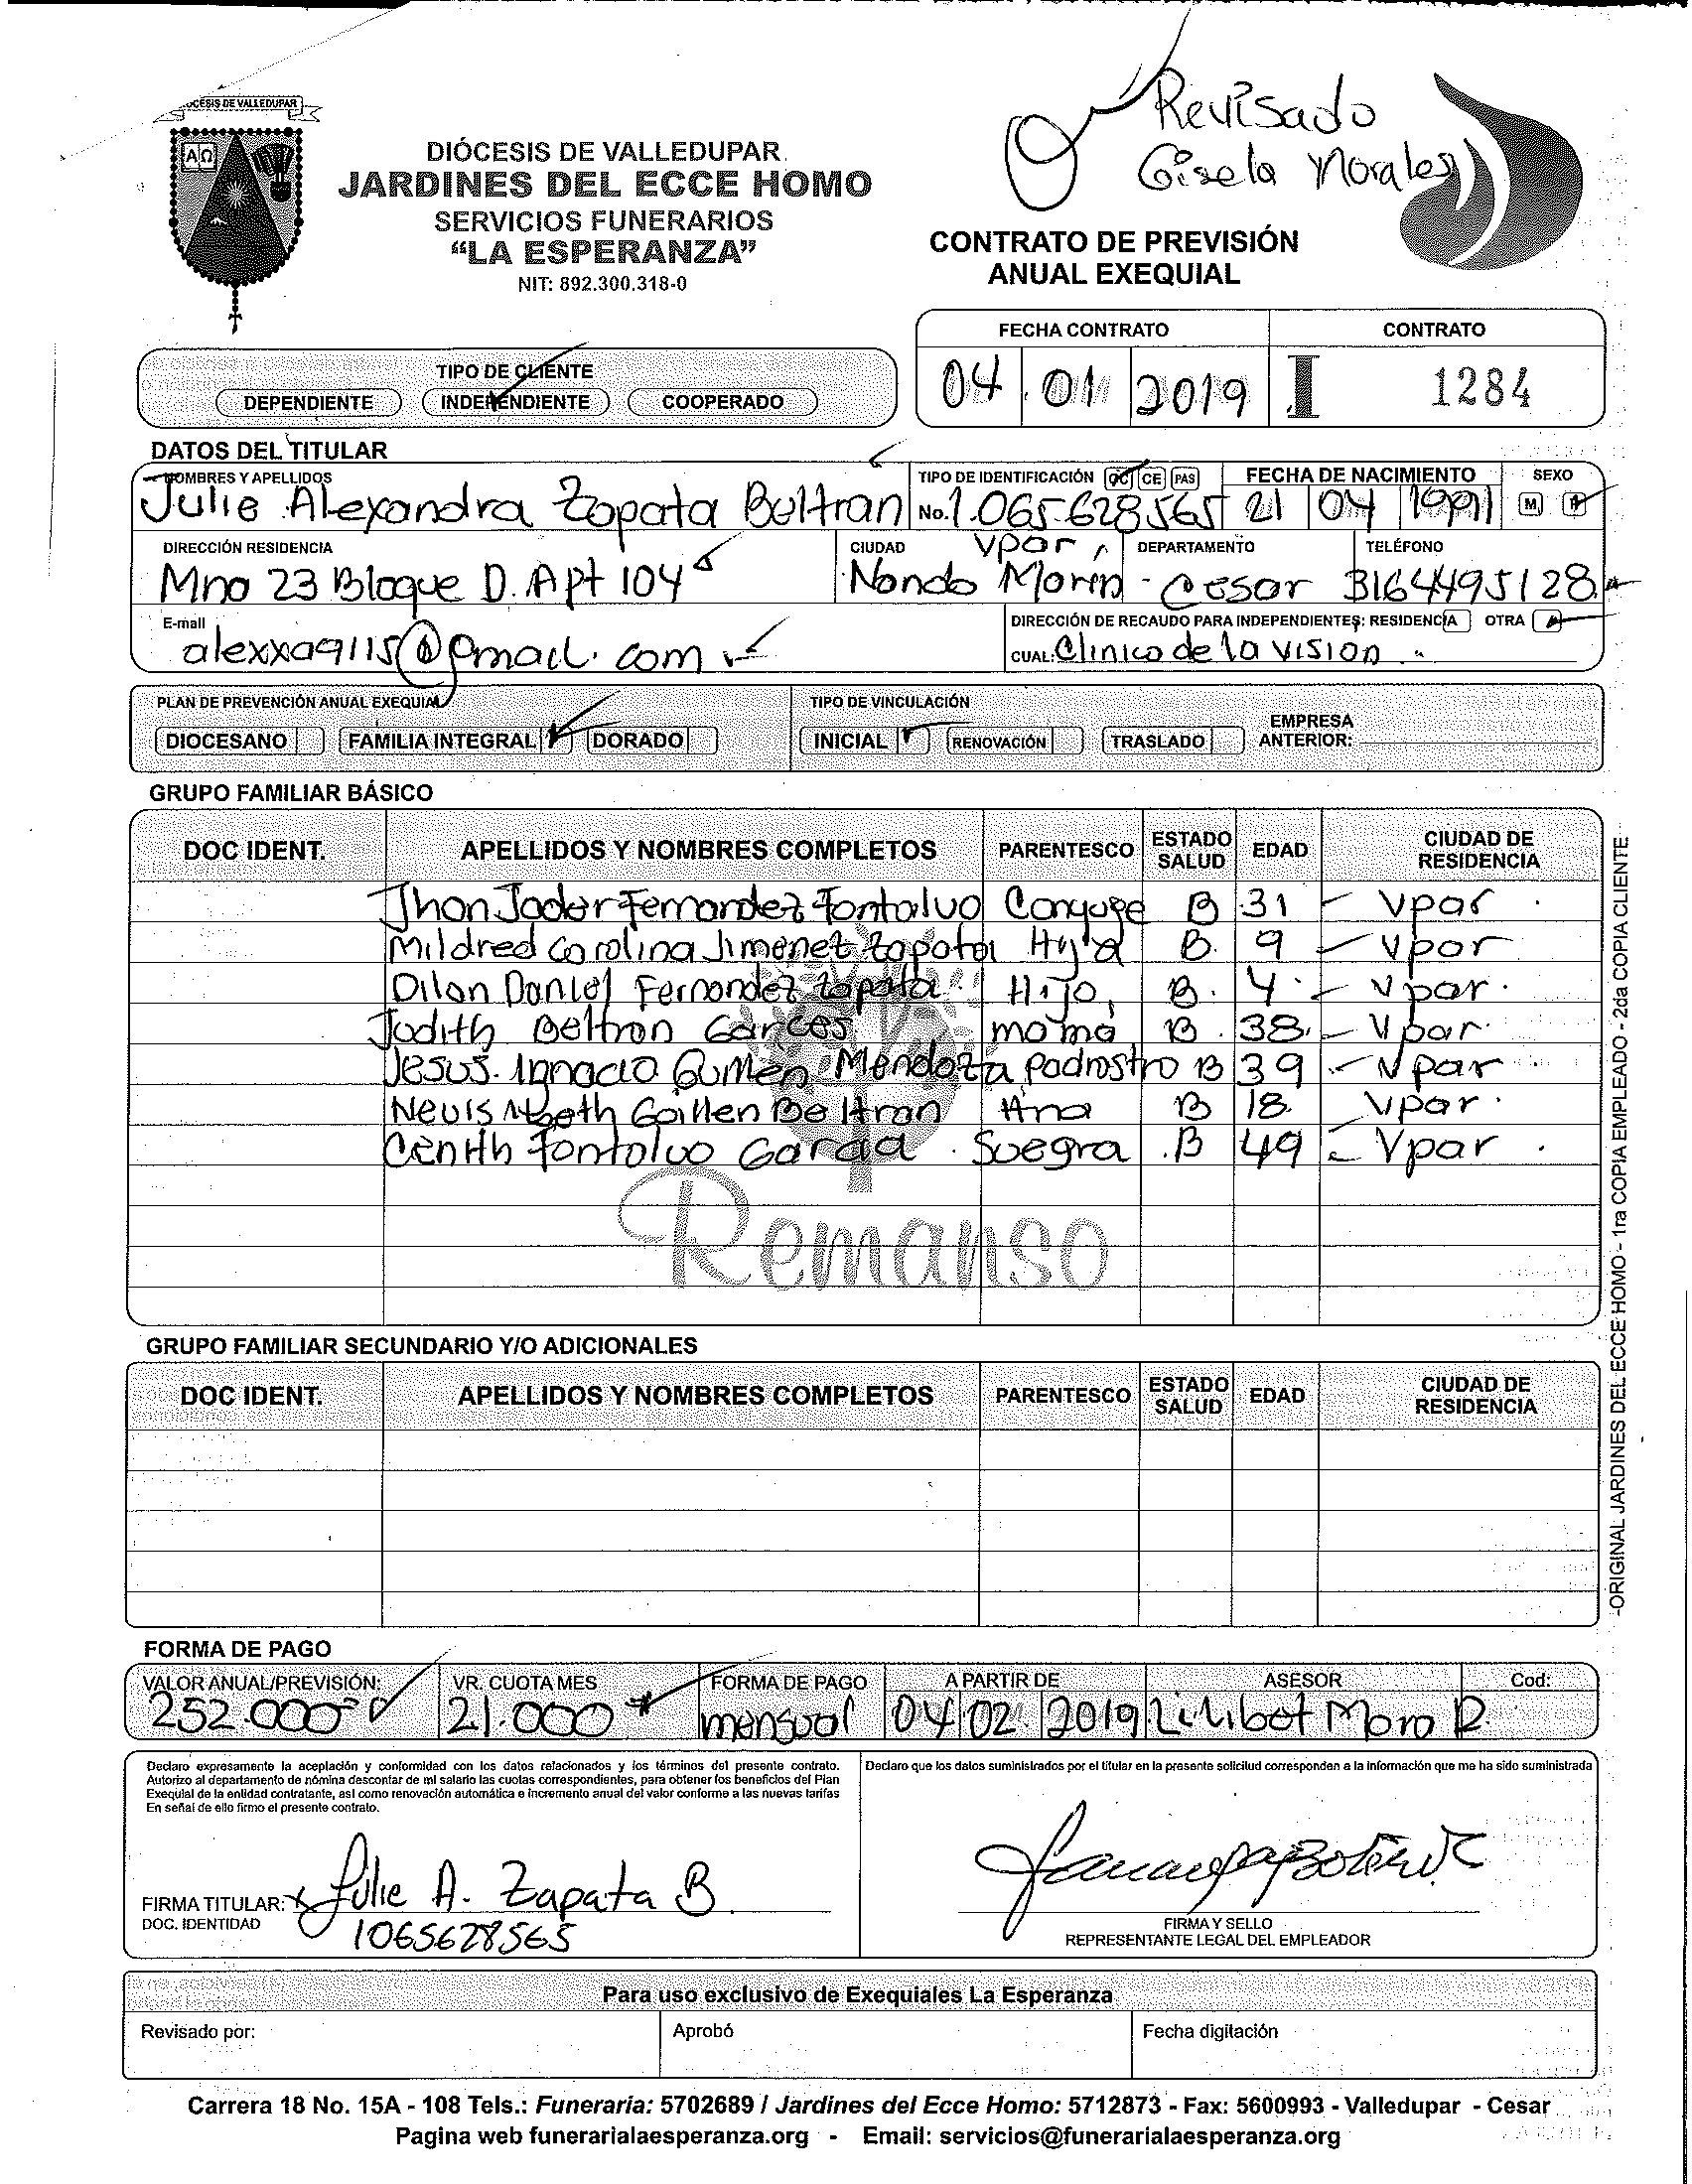 DIÓCESIS DE VALLEDUPAR
AΩ
DIÓCESIS DE VALLEDUPAR.
JARDINES DEL ECCE HOMO
SERVICIOS FUNERARIOS
“LA ESPERANZA”
NIT: 892.300.318-0
Revisado
Gisela Morales
CONTRATO DE PREVISIÓN
ANUAL EXEQUIAL
FECHA CONTRATO CONTRATO
04 01 2019 I 1284
TIPO DE CLIENTE
DEPENDIENTE INDEPENDIENTE COOPERADO
DATOS DEL TITULAR
NOMBRES Y APELLIDOS TIPO DE IDENTIFICACIÓN CC CE PAS FECHA DE NACIMIENTO SEXO
Julie Alexandra Zapata Beltran No. 1.065.628.565 21 04 1991 M F
DIRECCIÓN RESIDENCIA CIUDAD Vpar DEPARTAMENTO TELÉFONO
Mno 23 Bloque D. Apt 104 Nando Marin - Cesar 3164495128
E-mail DIRECCIÓN DE RECAUDO PARA INDEPENDIENTES: RESIDENCIA OTRA
alexxa9115@gmail.com CUAL: Clinica de la vision
PLAN DE PREVENCIÓN ANUAL EXEQUIAL TIPO DE VINCULACIÓN
DIOCESANO FAMILIA INTEGRAL DORADO INICIAL RENOVACIÓN TRASLADO EMPRESA ANTERIOR:
GRUPO FAMILIAR BÁSICO
DOC IDENT. APELLIDOS Y NOMBRES COMPLETOS PARENTESCO ESTADO SALUD EDAD CIUDAD DE RESIDENCIA
Jhon Jader Fernandez Fontalvo Conyuge B 31 - Vpar
Mildred Carolina Jimenez Zapata Hija B. 9 - Vpar
Dilan Daniel Fernandez Zapata Hijo B. 4 - Vpar.
Judith Beltran Garces mamá B. 38 - Vpar.
Jesus Ignacio Mendoza Padrastro B 39 - Vpar
Nevis Gaillen Beltran B 18 Vpar.
Cenith Fontalvo Garcia Suegra B 49 - Vpar
Remanso
GRUPO FAMILIAR SECUNDARIO Y/O ADICIONALES
DOC IDENT. APELLIDOS Y NOMBRES COMPLETOS PARENTESCO ESTADO SALUD EDAD CIUDAD DE RESIDENCIA
-ORIGINAL JARDINES DEL ECCE HOMO - 1ra COPIA EMPLEADO - 2da COPIA CLIENTE
FORMA DE PAGO
VALOR ANUAL/PREVISIÓN: VR. CUOTA MES FORMA DE PAGO A PARTIR DE ASESOR Cod:
252.000 21.000 mensual 04 02 2019 Lilibet Mora R.
Declaro expresamente la aceptación y conformidad con los datos relacionados y los términos del presente contrato.
Autorizo al departamento de nómina descontar de mi salario las cuotas correspondientes, para obtener los beneficios del Plan
Exequial de la entidad contratante, así como renovación automática e incremento anual del valor conforme a las nuevas tarifas
En señal de ello firmo el presente contrato.
Declaro que los datos suministrados por el titular en la presente solicitud corresponden a la información que me ha sido suministrada
FIRMA TITULAR: x Julie A. Zapata B
DOC. IDENTIDAD 1065628565
FIRMA Y SELLO
REPRESENTANTE LEGAL DEL EMPLEADOR
Para uso exclusivo de Exequiales La Esperanza
Revisado por: Aprobó Fecha digitación
Carrera 18 No. 15A - 108 Tels.: Funeraria: 5702689 / Jardines del Ecce Homo: 5712873 - Fax: 5600993 - Valledupar - Cesar
Pagina web funerarialaesperanza.org - Email: servicios@funerarialaesperanza.org